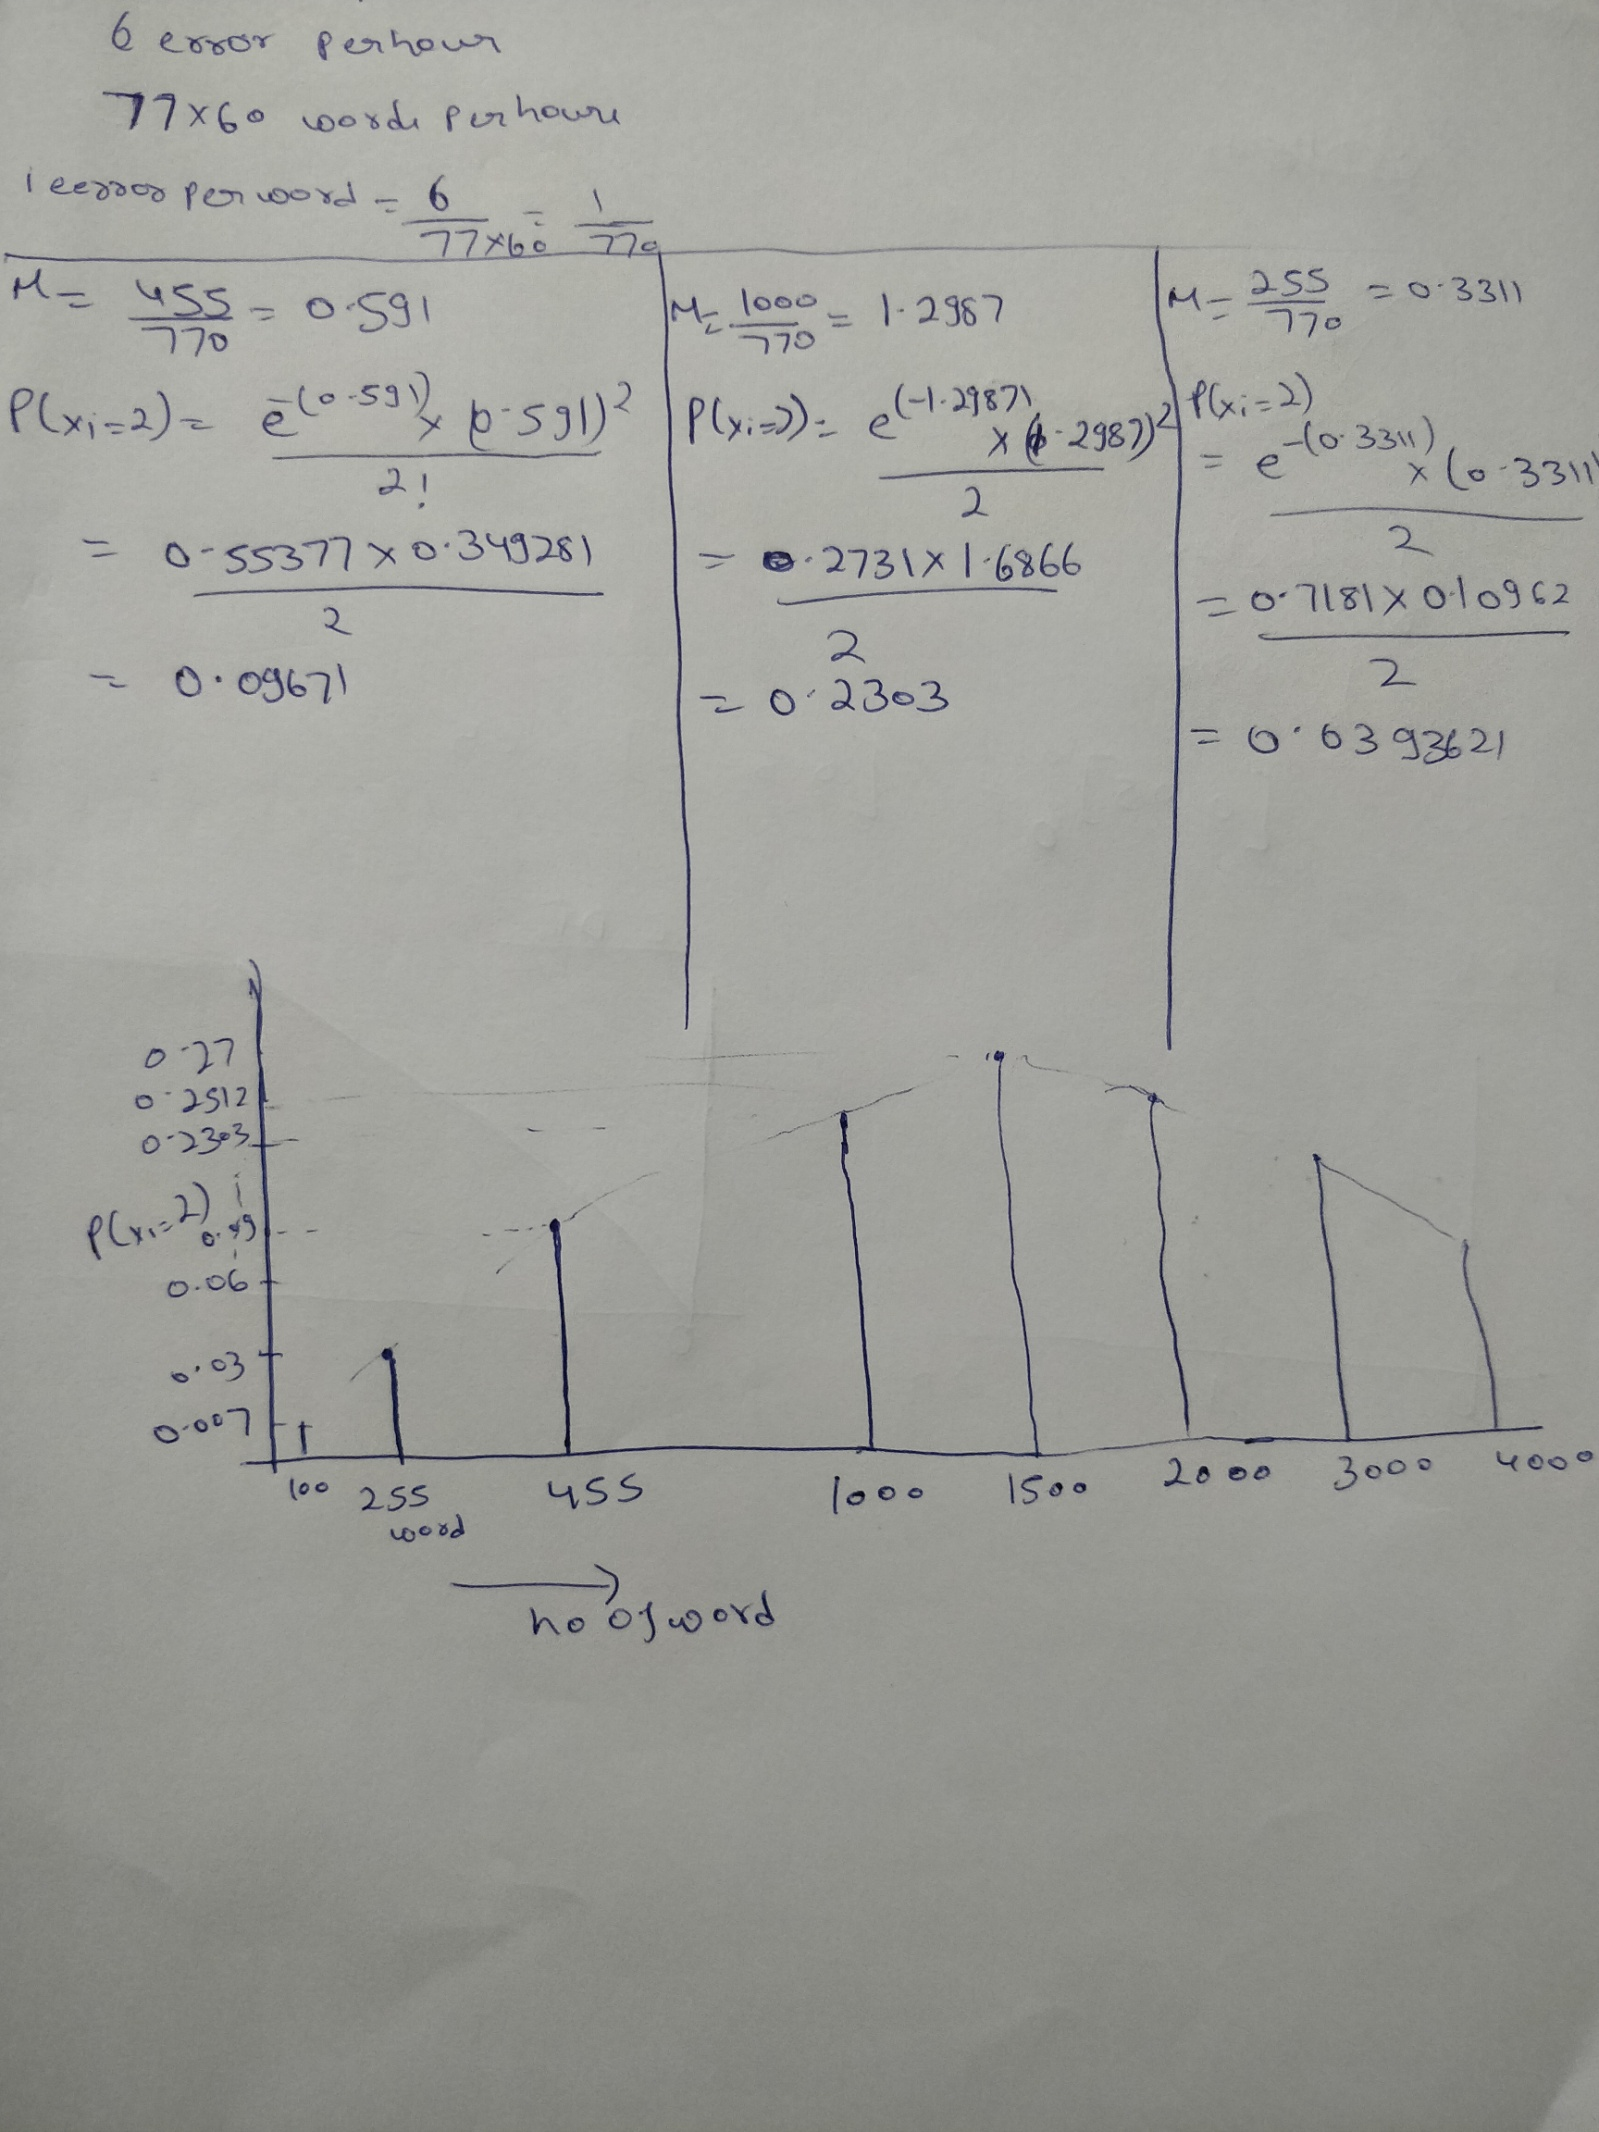 6 error per hour
77×60 words per hour
1 eerror per word = 6/77×60 = 1/770
M = 455/770 = 0.591
P(xi=2) = e^-(0.591) × (0.591)^2 / 2!
= 0.55377 × 0.349281 / 2
= 0.09671
M = 1000/770 = 1.2987
P(xi=2) = e^(-1.2987) × (1.2987)^2 / 2
= 0.2731 × 1.6866 / 2
= 0.2303
M = 255/770 = 0.3311
P(xi=2)
= e^-(0.3311) × (0.3311) / 2
= 0.7181 × 0.10962 / 2
= 0.0393621
0.27
0.2512
0.2303
P(xi=2)
0.06
0.03
0.007
100 255 455 1000 1500 2000 3000 4000
word
no of word